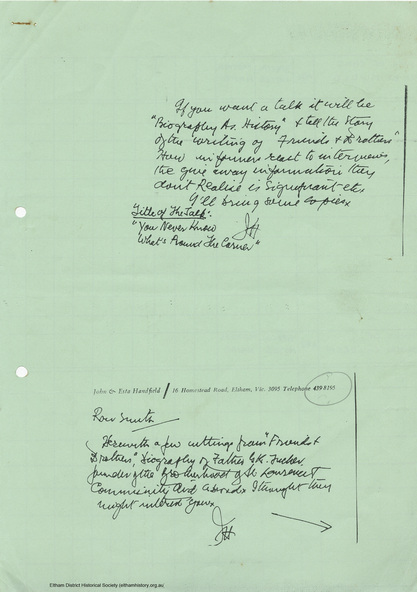 If you want a talk it will be
"Biography As History" & tell the Story
of the writing of "Friends & Brothers"
How informers react to interviews,
the give away information they
don't Realise is Significant etc.
I'll bring some copies
Title of The Talk:
"You Never Know
What's Around The Corner"
JH
John & Esta Handfield / 16 Homestead Road, Eltham, Vic. 3095 Telephone 439 8195
Smith
Herewith a few cuttings from "Friends &
Brothers", Biography of Father G.K. Tucker,
founder of the Brotherhood of St Laurence &
Community Aid Abroad. I thought they
might interest you.
JH
Eltham District Historical Society (elthamhistory.org.au)